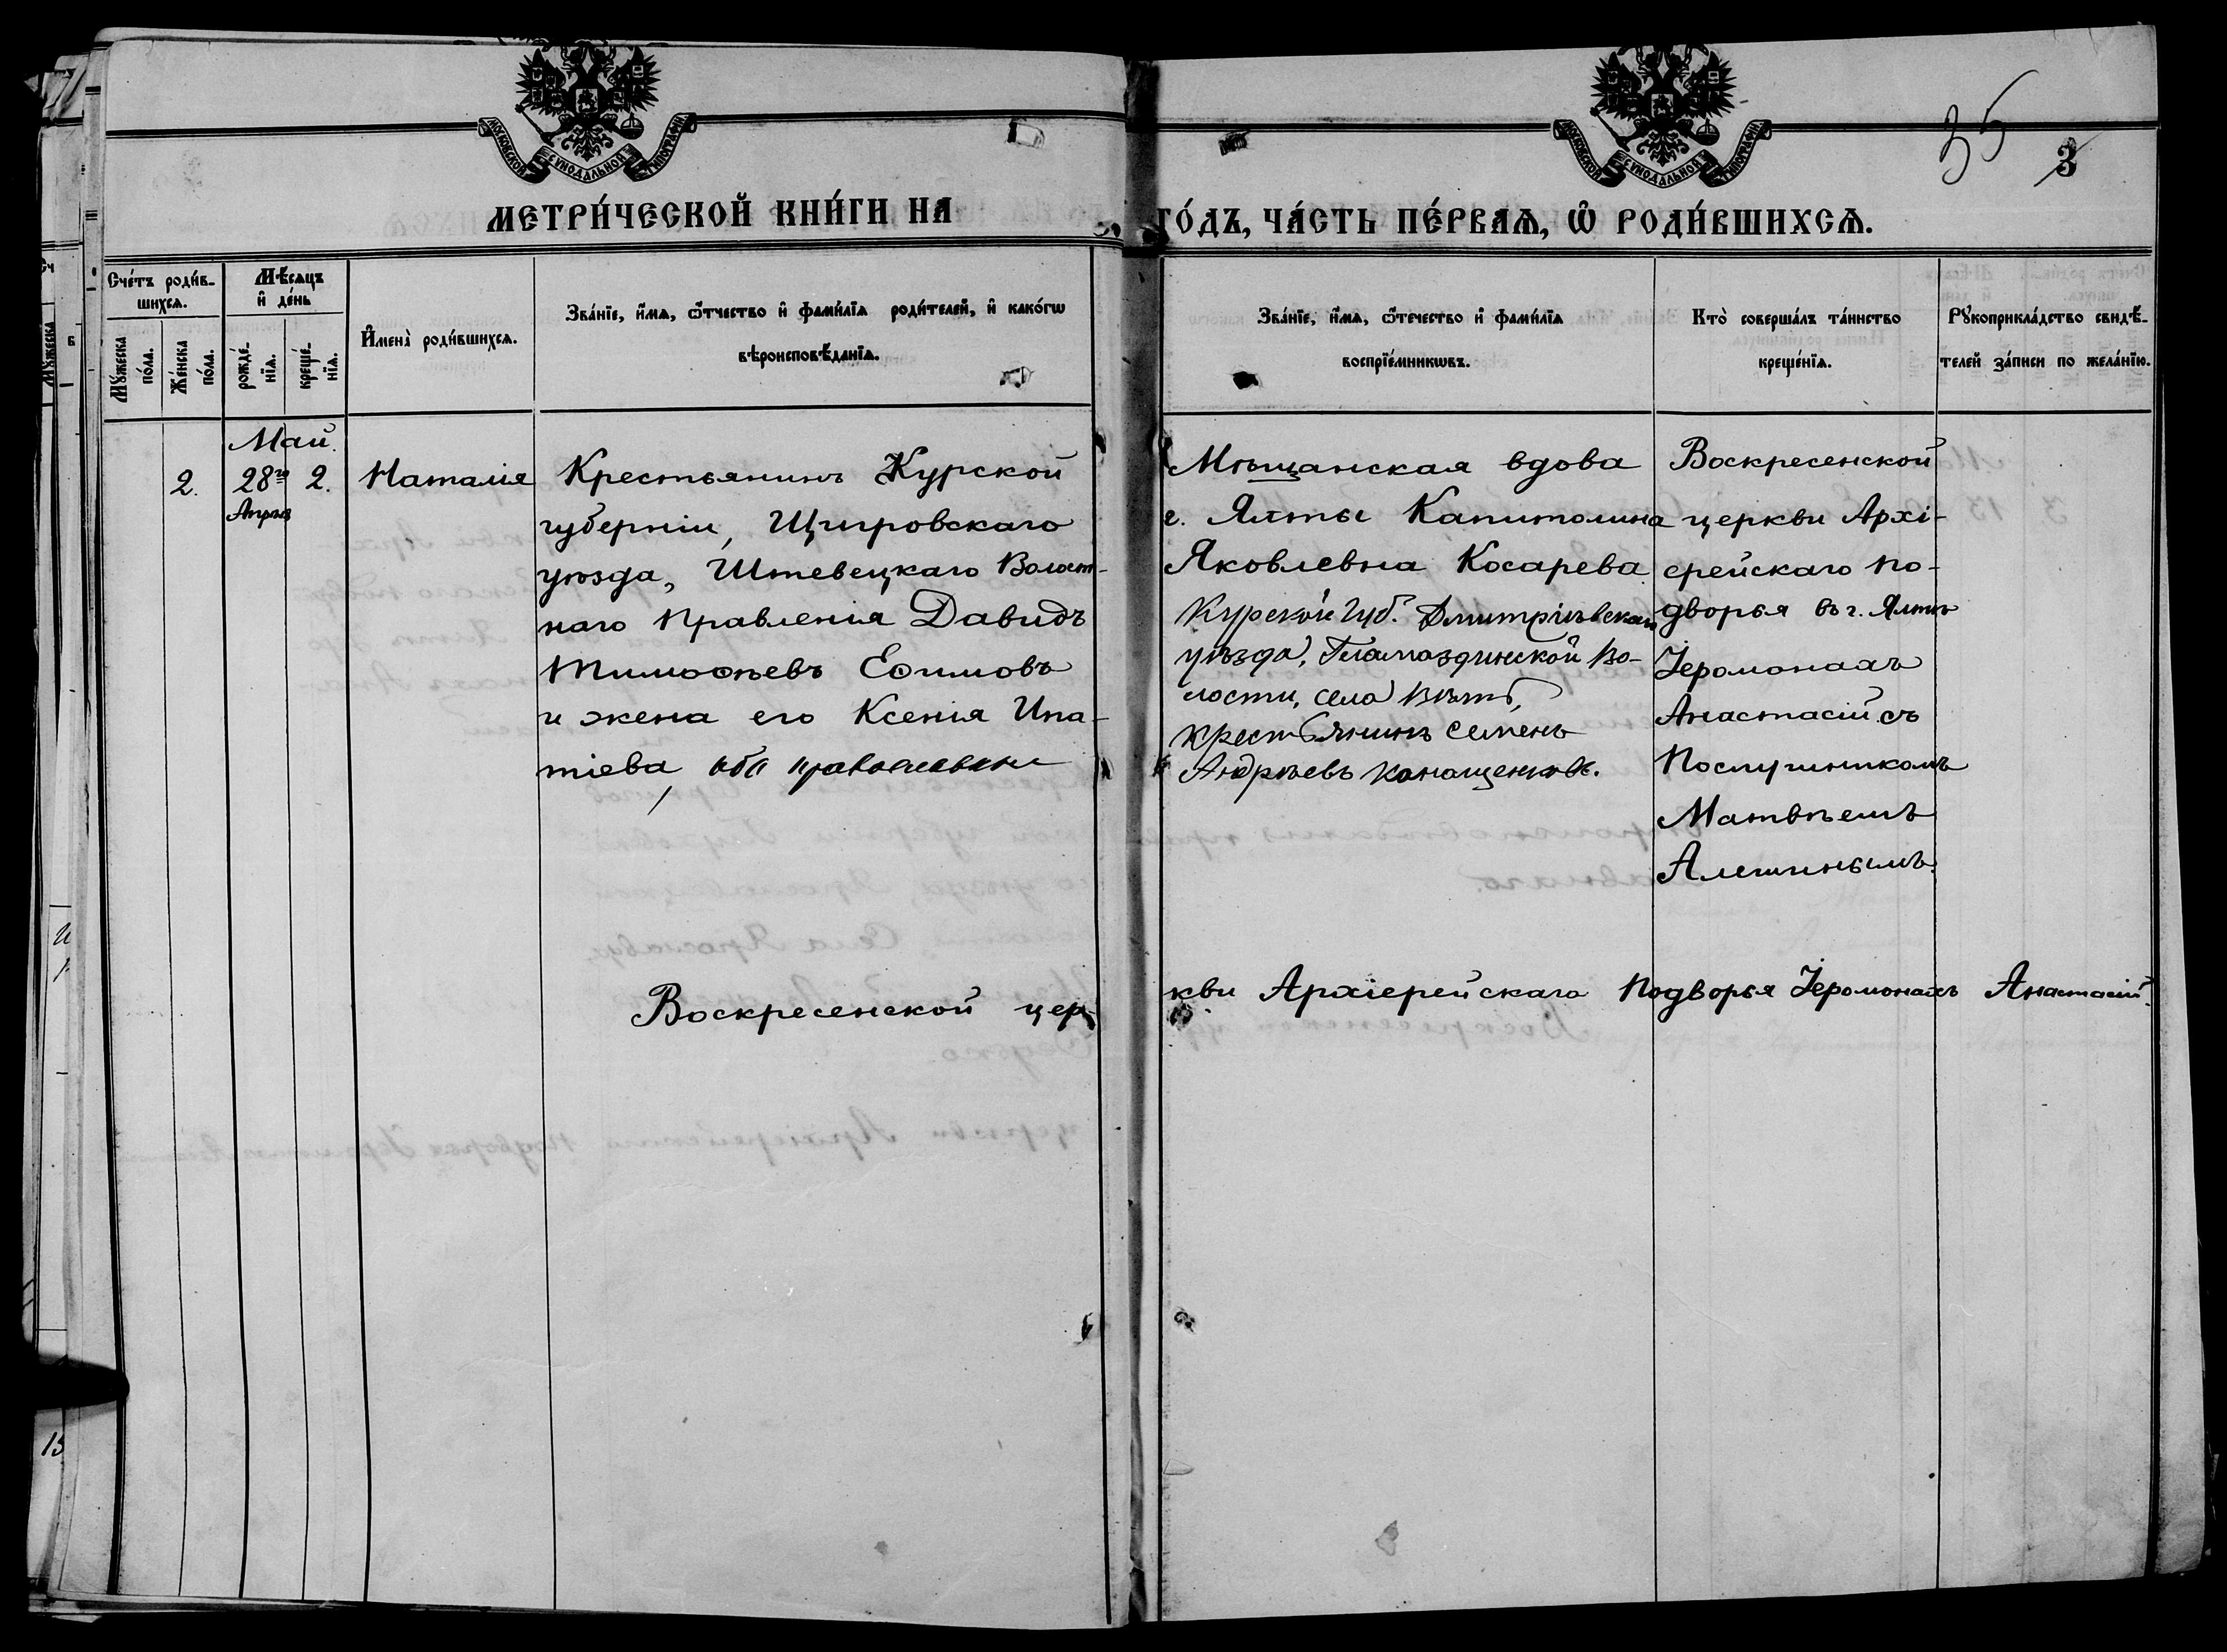 МОСКОВСКОЙ СУНОДАЛЬНОЙ ТИПОГРАФІИ
МОСКОВСКОЙ СУНОДАЛЬНОЙ ТИПОГРАФІИ
35
3
МЕТРИ́ЧЕСКОЙ КНИ́ГИ НА
ГО́ДЪ, ЧА́СТЬ ПЕ́РВАѦ, Ѡ҆ РОДИ́ВШИХСѦ.
Сче́тъ роди́в-
шихсѧ.
Мꙋ́жеска
по́ла.
Же́нска
по́ла.
Мѣ́сѧцъ
и҆ де́нь
рожде́-
нїѧ.
креще́-
нїѧ.
И҆мена̀ роди́вшихсѧ.
Зва́нїе, и҆́мѧ, ѻ҆́тчество и҆ фами́лїѧ роди́телей, и҆ како́гѡ
вѣроисповѣ́данїѧ.
Зва́нїе, и҆́мѧ, ѻ҆́течество и҆ фами́лїѧ
воспрїе́мникѡвъ.
Кто̀ соверша́лъ та́инство
креще́нїѧ.
Рꙋкоприкла́дство свидѣ́-
телей за́писи по жела́нїю.
Май.
2. 28го 2.
Апрѣ
Наталія
Крестьянинъ Курской
губерніи, Щигровскаго
уѣзда, Штевецкаго Волост-
наго Правленія Давидъ
Тимоѳеевъ Ефимовъ
и жена его Ксенія Ипа-
тіева, оба православные
Мѣщанская вдова
г. Ялты Капитолина
Яковлевна Косарева
Курской Губ. Дмитріевскаго
уѣзда, Гламаздинской Во-
лости, села
крестьянинъ Семенъ
Андреевъ Конащенковъ.
Воскресенской
церкви Архі-
ерейскаго по-
дворья въ г. Ялтѣ
Іеромонахъ
Анастасій съ
Послушникомъ
Матвѣемъ
Алешинымъ.
Воскресенской цер-
кви Архіерейскаго Подворья Іеромонахъ Анастасій.
15